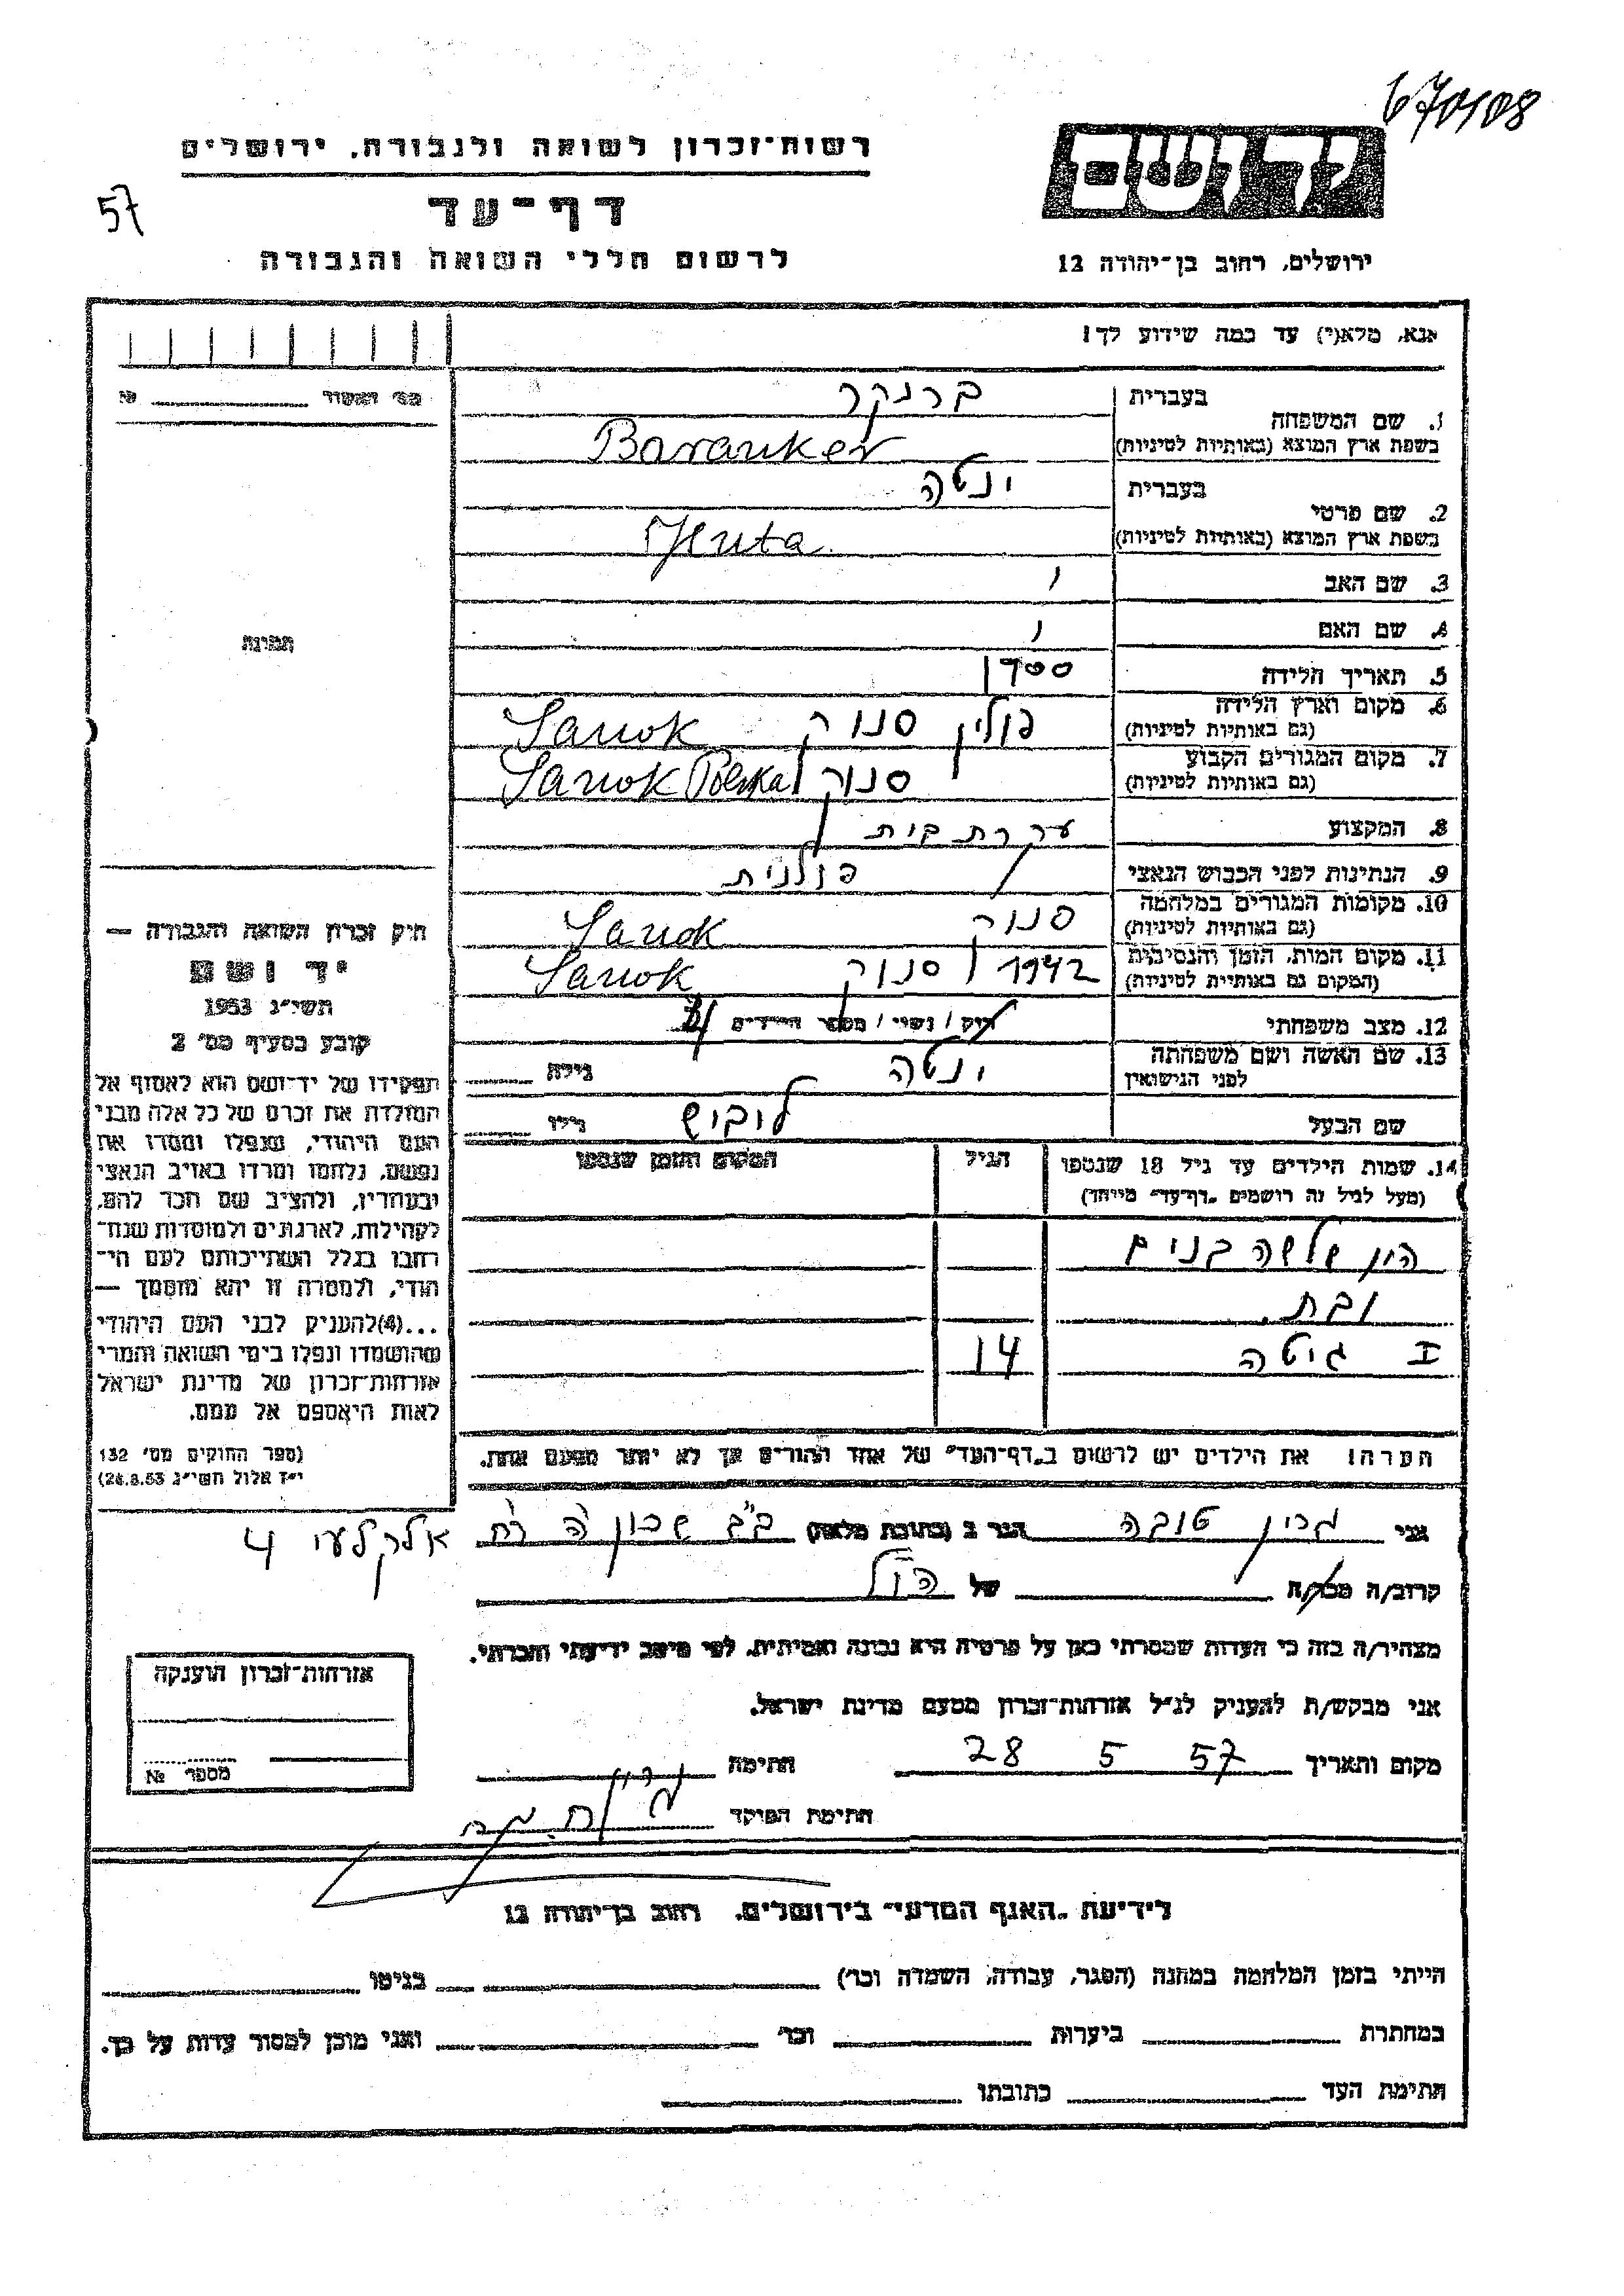 670108
רשות־זכרון לשואה ולגבורה, ירושלים
57
דף־עד
לרשום חללי השואה והגבורה
יד ושם
ירושלים, רחוב בן־יהודה 12
אנא, מלא(י) עד כמה שידוע לך!
№
1. שם המשפחה
בעברית ברנקר
בשפת ארץ המוצא (באותיות לטיניות) Baranker
2. שם פרטי
בעברית ינטה
בשפת ארץ המוצא (באותיות לטיניות) Jenta
3. שם האב
4. שם האם
5. תאריך הלידה
6. מקום וארץ הלידה
(גם באותיות לטיניות) פולין סנוק Sanok
7. מקום המגורים הקבוע
(גם באותיות לטיניות) סנוק Sanok Polska
8. המקצוע עקרת בית
9. הנתינות לפני הכבוש הנאצי פולנית
10. מקומות המגורים במלחמה
(גם באותיות לטיניות) סנוק Sanok
11. מקום המות, הזמן והנסיבות
(המקום גם באותיות לטיניות) 1942 סנוק Sanok
12. מצב משפחתי רוק / נשוי / מספר הילדים
13. שם האשה ושם משפחתה
לפני הנישואין ינטה גילה
שם הבעל ליבוש גילו
14. שמות הילדים עד גיל 18 שנספו
(מעל לגיל זה רושמים „דף־עד” מיוחד)
הגיל
המקום והזמן שנספו
היו שלשה בנים
ובת.
I גיטה 14
הערה! את הילדים יש לרשום ב„דף־העד” של אחד ההורים אך לא יותר מפעם אחת.
תמונה
חוק זכרון השואה והגבורה —
יד ושם
תשי״ג 1953
קובע בסעיף מס׳ 2
תפקידו של יד־ושם הוא לאסוף אל
המולדת את זכרם של כל אלה מבני
העם היהודי, שנפלו ומסרו את
נפשם, נלחמו ומרדו באויב הנאצי
ובעוזריו, ולהציב שם וזכר להם,
לקהילות, לארגונים ולמוסדות שנח־
רבו בגלל השתייכותם לעם הי־
הודי, ולמטרה זו יהא מוסמך —
...(4)להעניק לבני העם היהודי
שהושמדו ונפלו בימי השואה והמרי
אזרחות־זכרון של מדינת ישראל
לאות היאספם אל עמם.
(ספר החוקים מס׳ 132
י״ז אלול תשי״ג 28.8.53)
אני טובה הגר ב (כתובת מלאה) ב״ב שכון ה׳ רח׳ אלקלעי 4
קרוב/ה מכר/ה של הנ״ל
מצהיר/ה בזה כי העדות שמסרתי כאן על פרטיה היא נכונה ואמיתית, לפי מיטב ידיעתי והכרתי.
אני מבקש/ת להעניק לנ״ל אזרחות־זכרון מטעם מדינת ישראל.
מקום ותאריך 28 5 57 חתימה
חתימת הפוקד
אזרחות־זכרון הוענקה
מספר №
לידיעת „האגף המדעי” בירושלים, רחוב בן־יהודה 12
הייתי בזמן המלחמה במחנה (הסגר, עבודה, השמדה וכו׳) בגיטו
במחתרת ביערות וכו׳ ואני מוכן למסור עדות על כך.
חתימת העד כתובתו